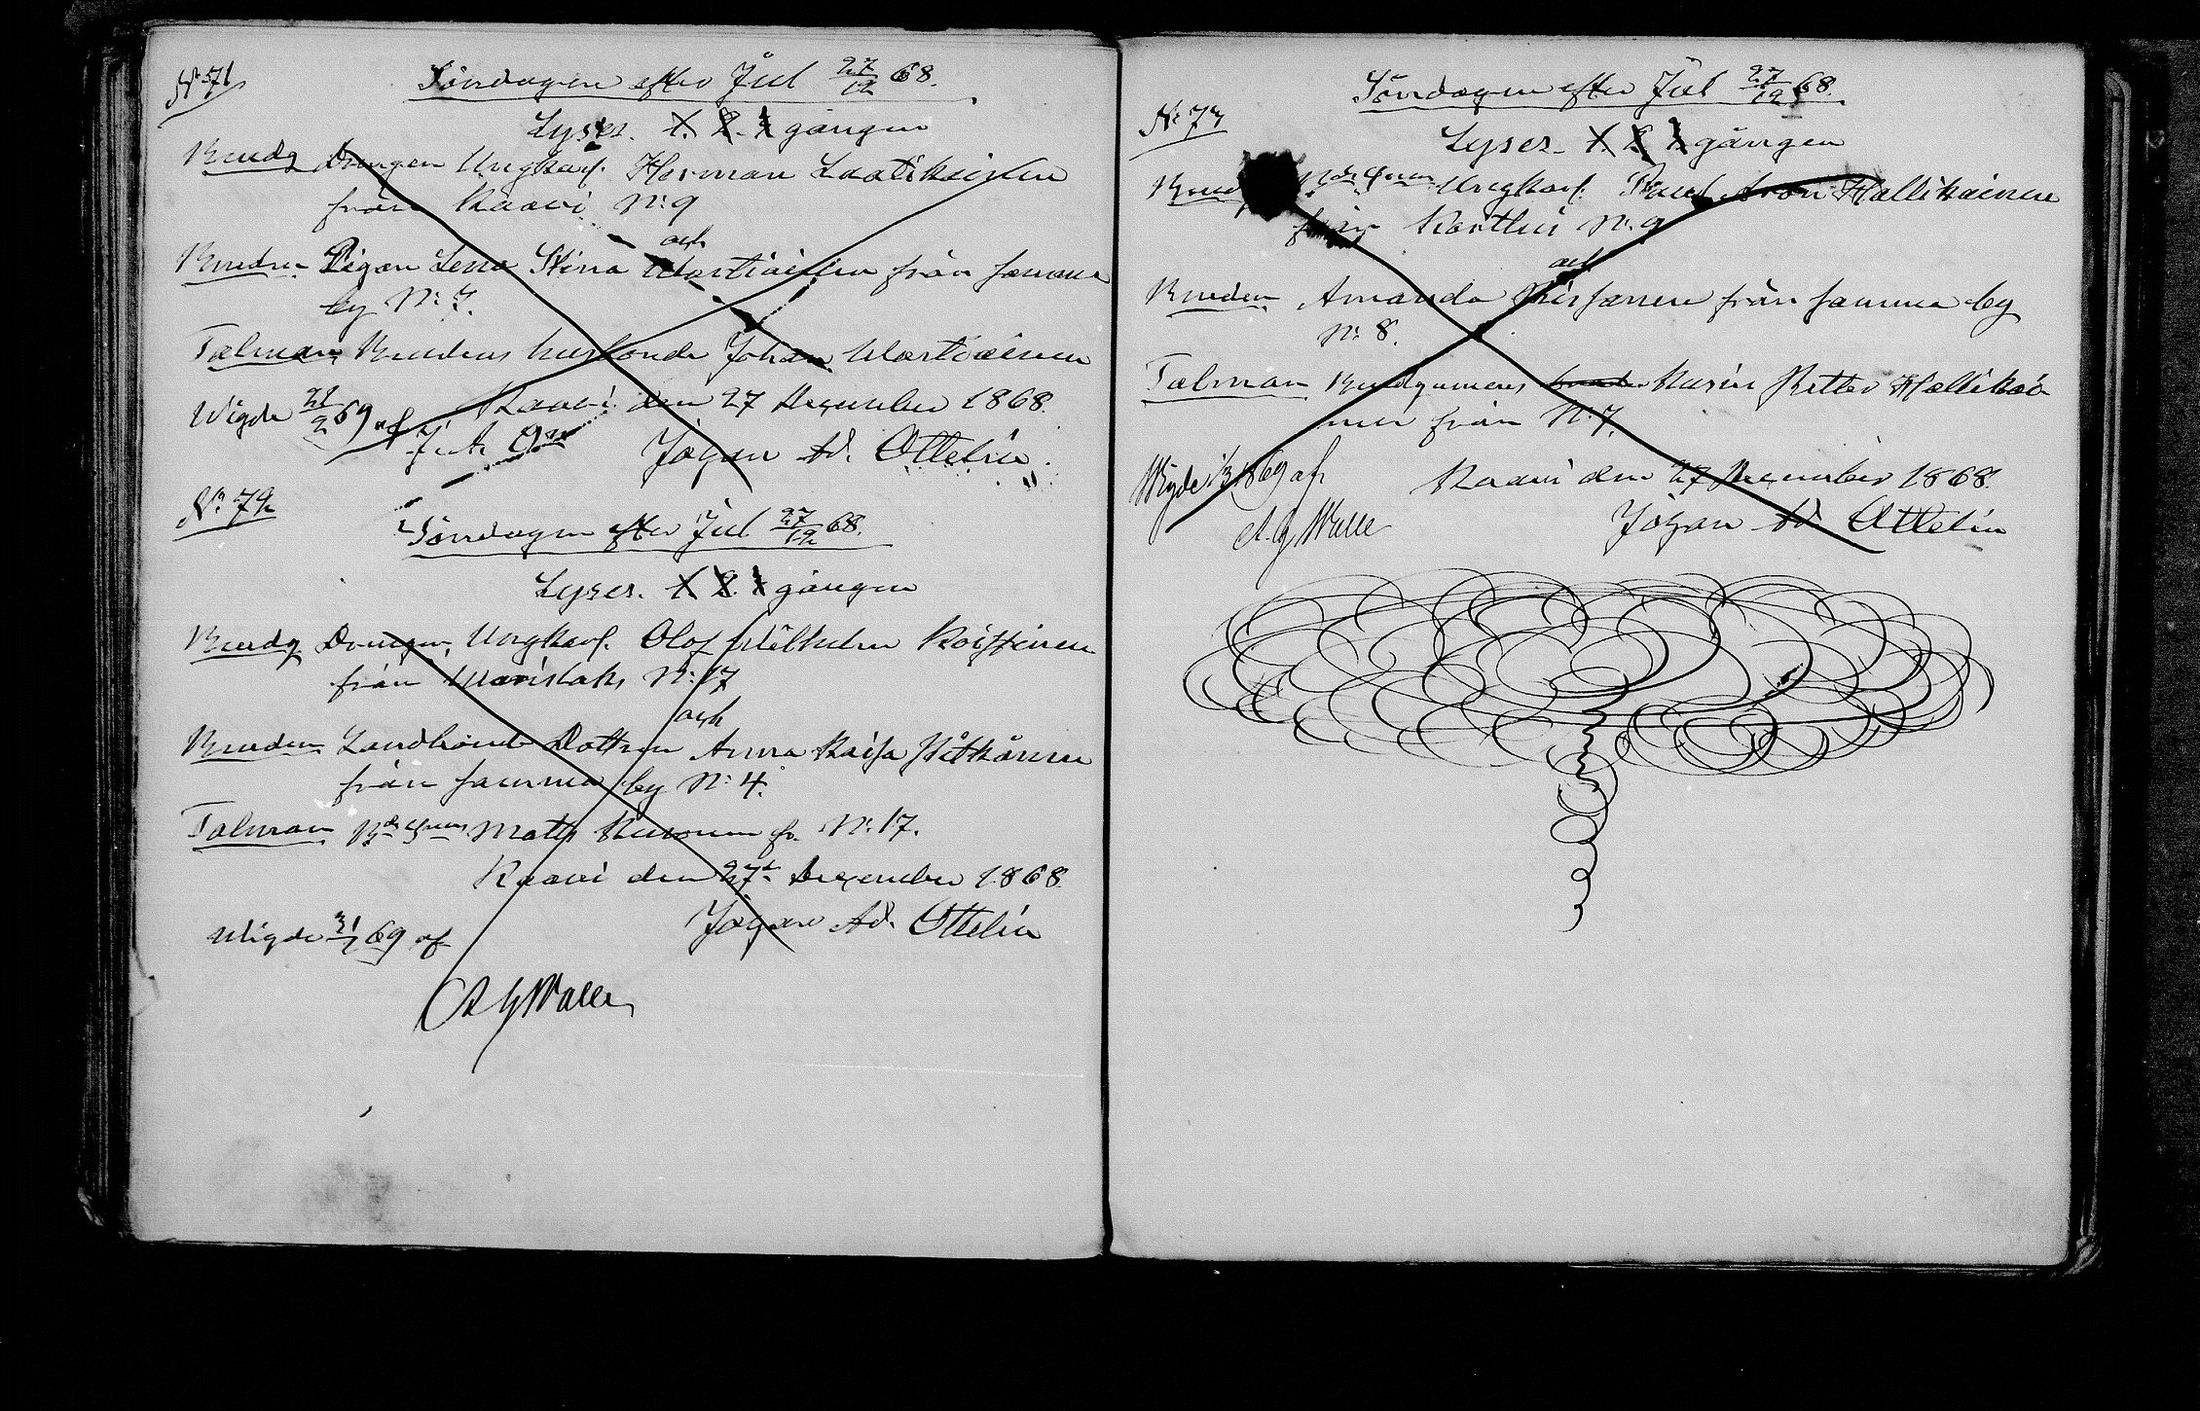 N:o 71
Söndagen efter Jul 27/12 68.
Lyses. 1. 2. 3 gången
Brudg Drengen Ungkarl. Herman Laatikainen
från Kaavi N:o 9
och
Bruden Pigan Lena Stina Wartiainen från samma
by N:o 7.
Talman Brudens husbonde Johan Wartiainen
Kaavi den 27 December 1868.
Wigde 21/2 69 af
Johan Ad. Ottelin
N:o 72
Söndagen efter Jul 27/12 68.
Lyses. 1. 2. 3 gången
Brudg Drengen, Ungkarl. Olof Wilhelm Koistinen
från Warislaks N:o 17
och
Bruden Landbonde Dottren Anna Kaisa Pitkänen
från samma by N:o 4.
Talman Matts fr. N:o 17.
Kaavi den 27de December 1868.
Johan Ad. Ottelin
Wigde 31/1 69 af
A G Walle
N:o 73
Söndagen efter Jul 27/12 68.
Lyses. 1. 2. 3 gången
Ungkarl. Paul Aron Hallikainen
från Kortteis N:o 9
och
Bruden Amanda från samma by
N:o 8.
Talman Brudgumens Kusin Petter Hallikai-
nen från N:o 7.
Kaavi den 27 December 1868.
Wigde 69 af
A. G Walle
Johan Ad. Ottelin